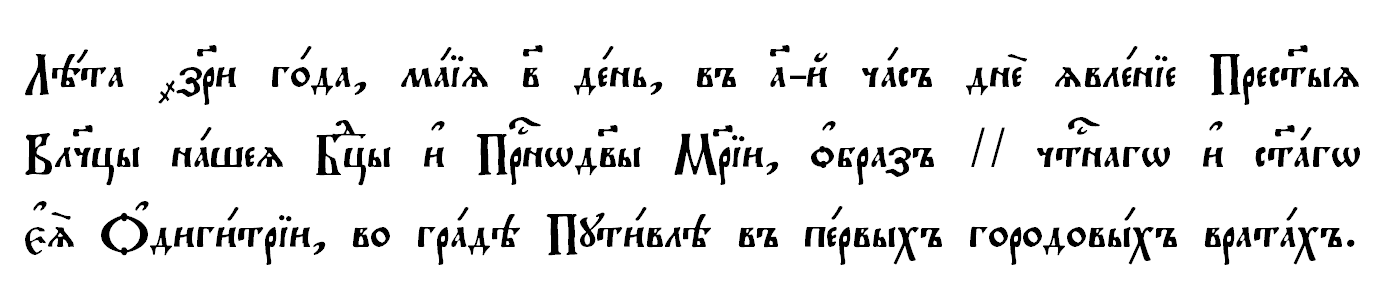 Лѣ́та ҂зр҃и го́да, ма́їѧ в҃ де́нь, въ а҃-й ча́съ днѐ ѧвле́нїе Прест҃ыѧ
Влⷱ҇цы на́шеѧ Бцⷣы и҆ Прⷭ҇нѡдв҃ы Мр҃їи, о҆́бразъ // чтⷭ҇нагѡ и҆ ст҃а́гѡ
є҆ѧ̀ Ѻ҆диги́трїи, во гра́дѣ Пꙋти́влѣ въ пе́рвыхъ городовы́хъ врата́хъ.